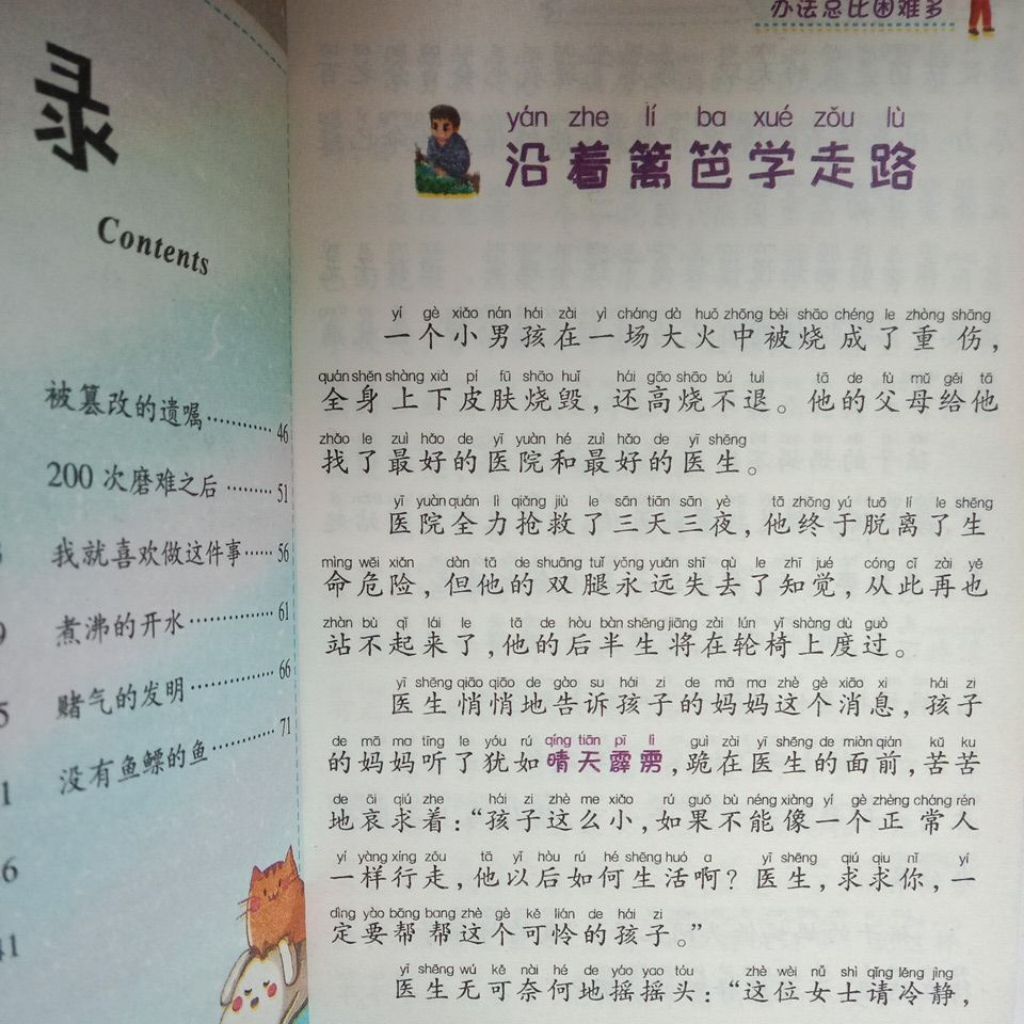 录
Contents
被篡改的遗嘱············ 46
200 次磨难之后 ········· 51
我就喜欢做这件事······ 56
煮沸的开水············· 61
赌气的发明·············· 66
没有鱼鳔的鱼············ 71
办法总比困难多
yán zhe lí ba xué zǒu lù
沿着篱笆学走路
yí gè xiǎo nán hái zài yì cháng dà huǒ zhōng bèi shāo chéng le zhòng shāng
一个小男孩在一场大火中被烧成了重伤，
quán shēn shàng xià pí fū shāo huǐ hái gāo shāo bú tuì tā de fù mǔ gěi tā
全身上下皮肤烧毁，还高烧不退。他的父母给他
zhǎo le zuì hǎo de yī yuàn hé zuì hǎo de yī shēng
找了最好的医院和最好的医生。
yī yuàn quán lì qiǎng jiù le sān tiān sān yè tā zhōng yú tuō lí le shēng
医院全力抢救了三天三夜，他终于脱离了生
mìng wēi xiǎn dàn tā de shuāng tuǐ yǒng yuǎn shī qù le zhī jué cóng cǐ zài yě
命危险，但他的双腿永远失去了知觉，从此再也
zhàn bù qǐ lái le tā de hòu bàn shēng jiāng zài lún yǐ shàng dù guò
站不起来了，他的后半生将在轮椅上度过。
yī shēng qiāo qiāo de gào su hái zi de mā ma zhè gè xiāo xi hái zi
医生悄悄地告诉孩子的妈妈这个消息，孩子
de mā ma tīng le yóu rú qíng tiān pī lì guì zài yī shēng de miàn qián kǔ ku
的妈妈听了犹如晴天霹雳，跪在医生的面前，苦苦
de āi qiú zhe hái zi zhè me xiǎo rú guǒ bù néng xiàng yí gè zhèng cháng rén
地哀求着：“孩子这么小，如果不能像一个正常人
yí yàng xíng zǒu tā yǐ hòu rú hé shēng huó a yī shēng qiú qiu nǐ yí
一样行走，他以后如何生活啊？医生，求求你，一
dìng yào bāng bang zhè gè kě lián de hái zi
定要帮帮这个可怜的孩子。”
yī shēng wú kě nài hé de yáo yao tóu zhè wèi nǚ shì qǐng lěng jìng
医生无可奈何地摇摇头：“这位女士请冷静，